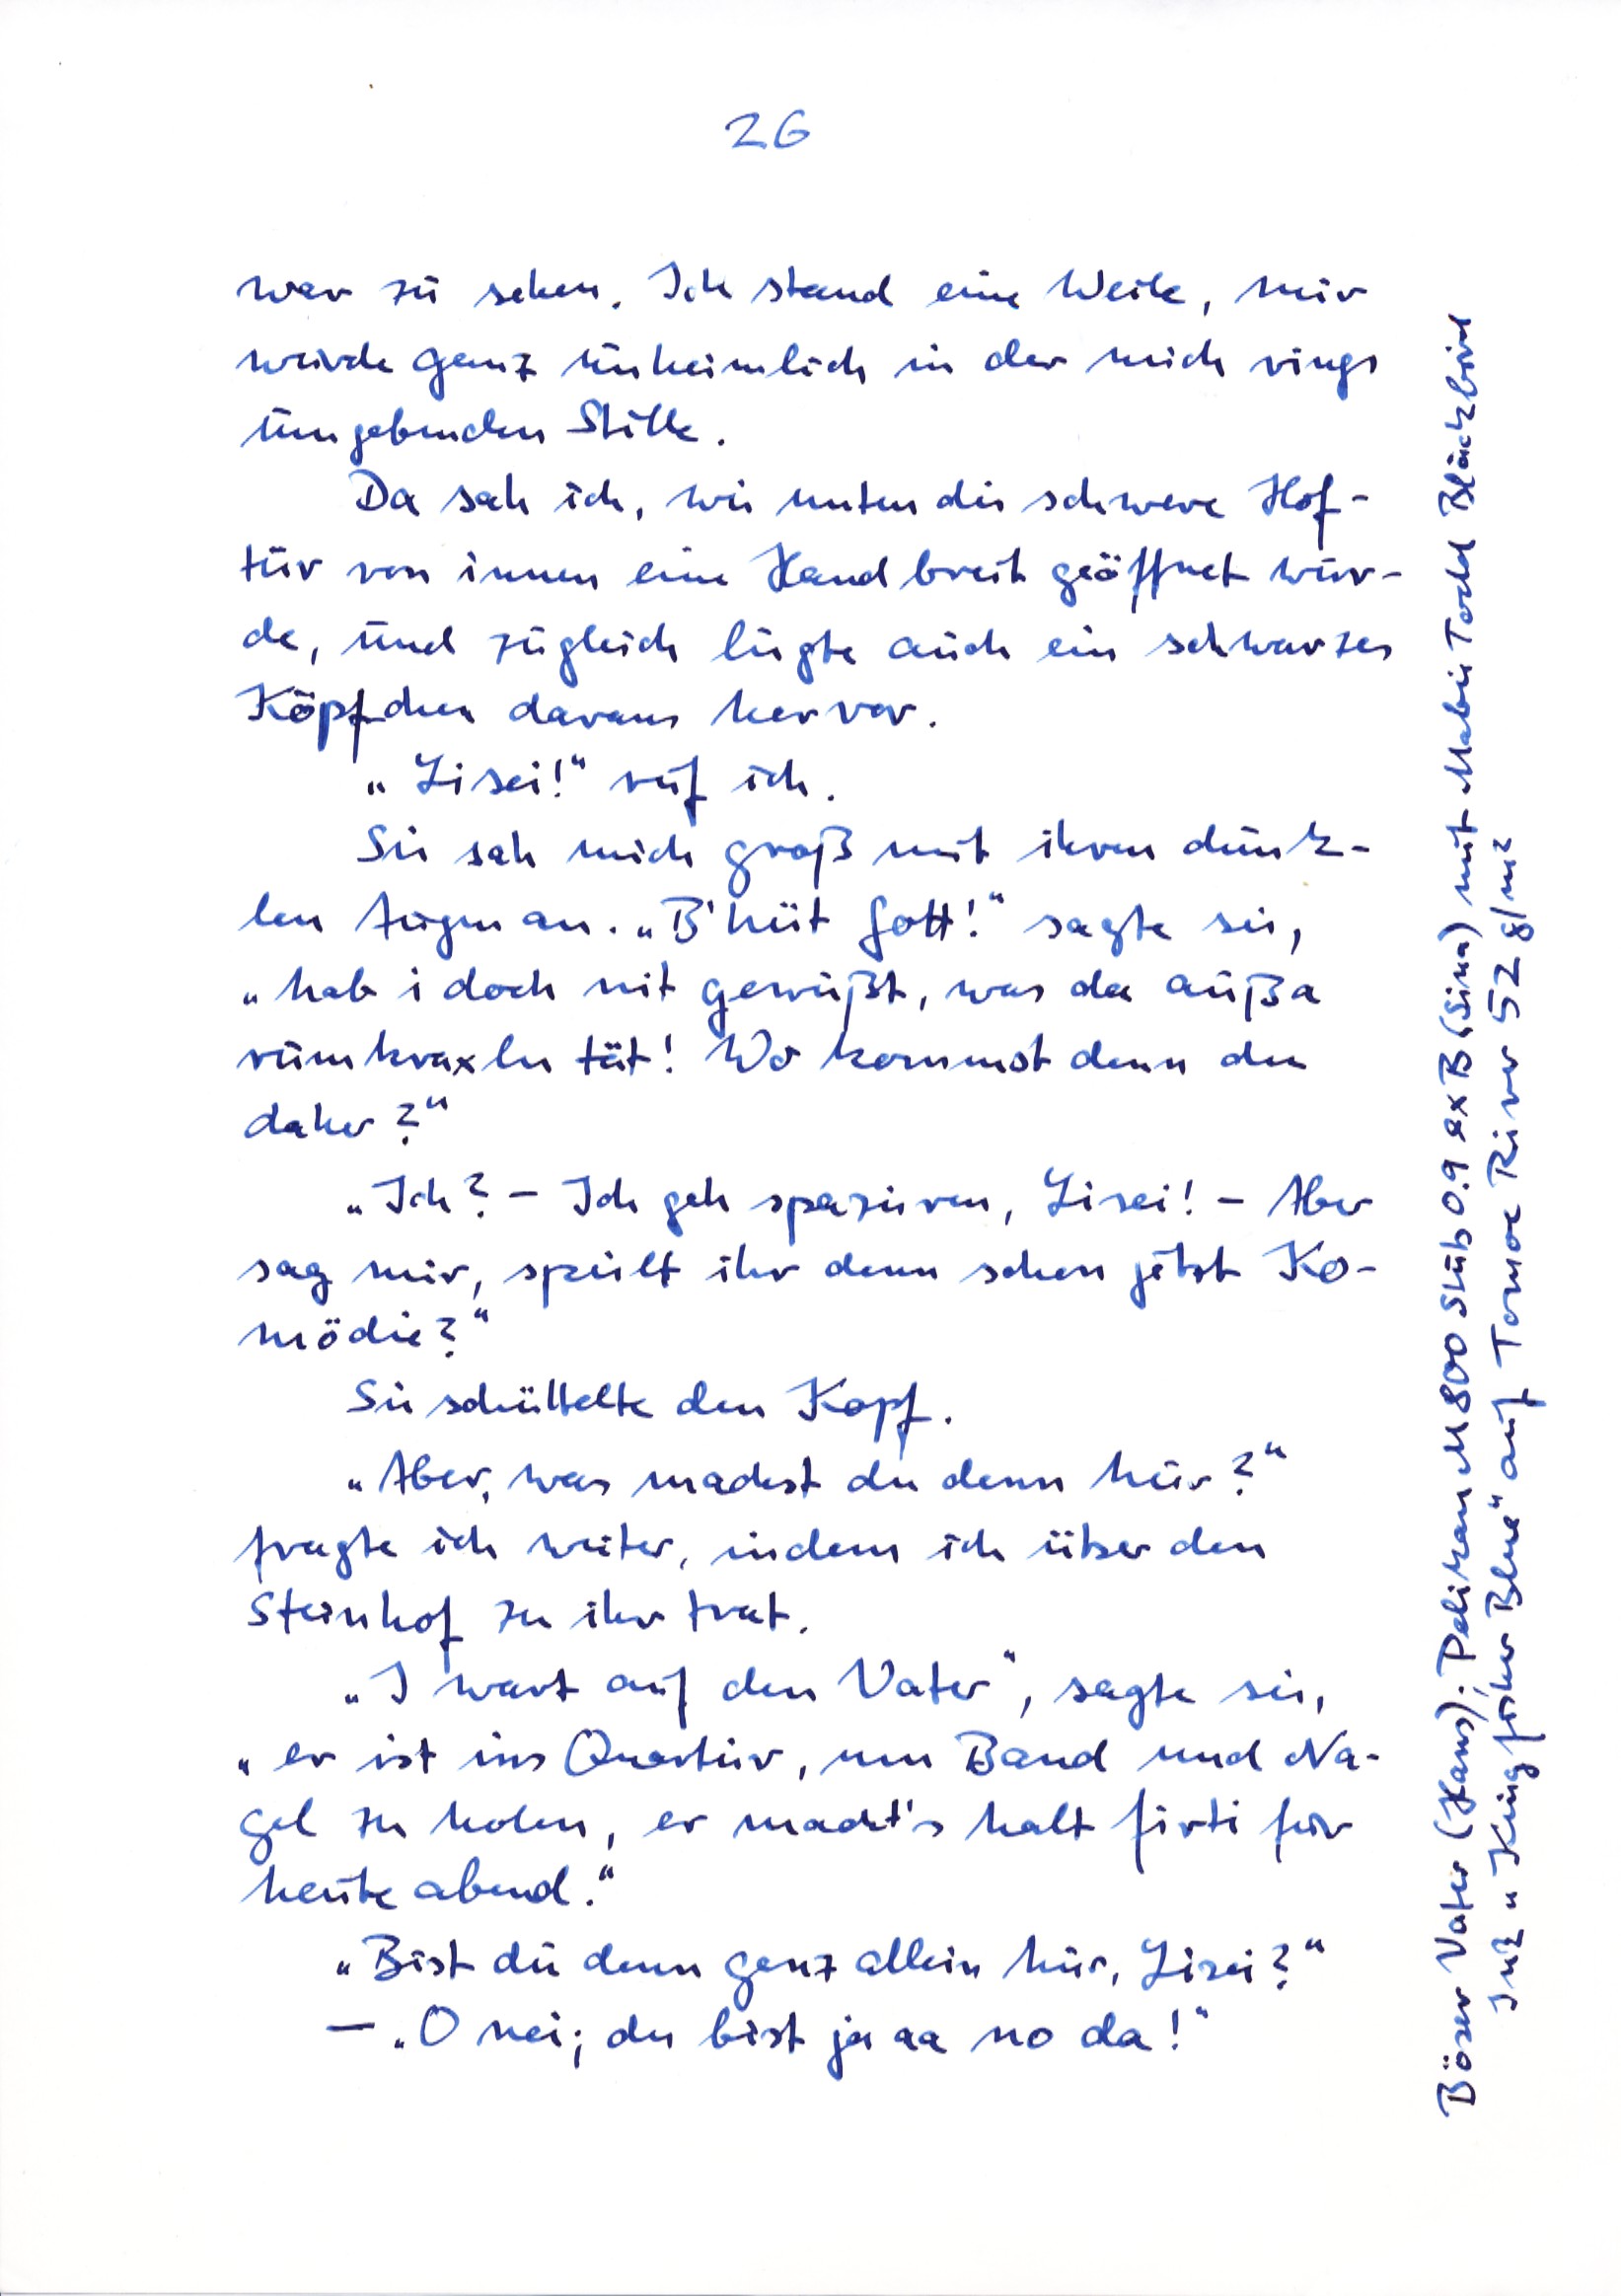 26
war zu sehen. Ich stand eine Weile, mir
wurde ganz unheimlich in der mich rings
umgebenden Stille.
Da sah ich, wie unten die schwere Hof-
tür von innen eine Hand breit geöffnet wur-
de, und zugleich lugte auch ein schwarzes
Köpfchen daraus hervor.
„Lisei!“ rief ich.
Sie sah mich groß mit ihren dunk-
len Augen an. „B'hüt Gott!“ sagte sie,
„hab i doch nit gewußt, was da außa
rumkraxln tät! Wo kommst denn du
daher?“
„Ich? – Ich geh spazieren, Lisei! – Aber
sag mir, spielt ihr denn schon jetzt Ko-
mödie?“
Sie schüttelte den Kopf.
„Aber, was machst du denn hier?“
fragte ich weiter, indem ich über den
Steinhof zu ihr trat.
„I wart auf den Vater“, sagte sie,
„er ist ins Quartier, um Band und Na-
gel zu holen, er macht's halt firti für
heute abend.“
„Bist du denn ganz allein hier, Lisei?“
— „O nei; du bist ja aa no da!“
Böser Vater (Hans): Pelikan M800 Stub 0.9 ex B (Sina) mit Mabie Todd Blackbird
Ink „Kingfisher Blue“ auf Tomoe River 52 g/m²